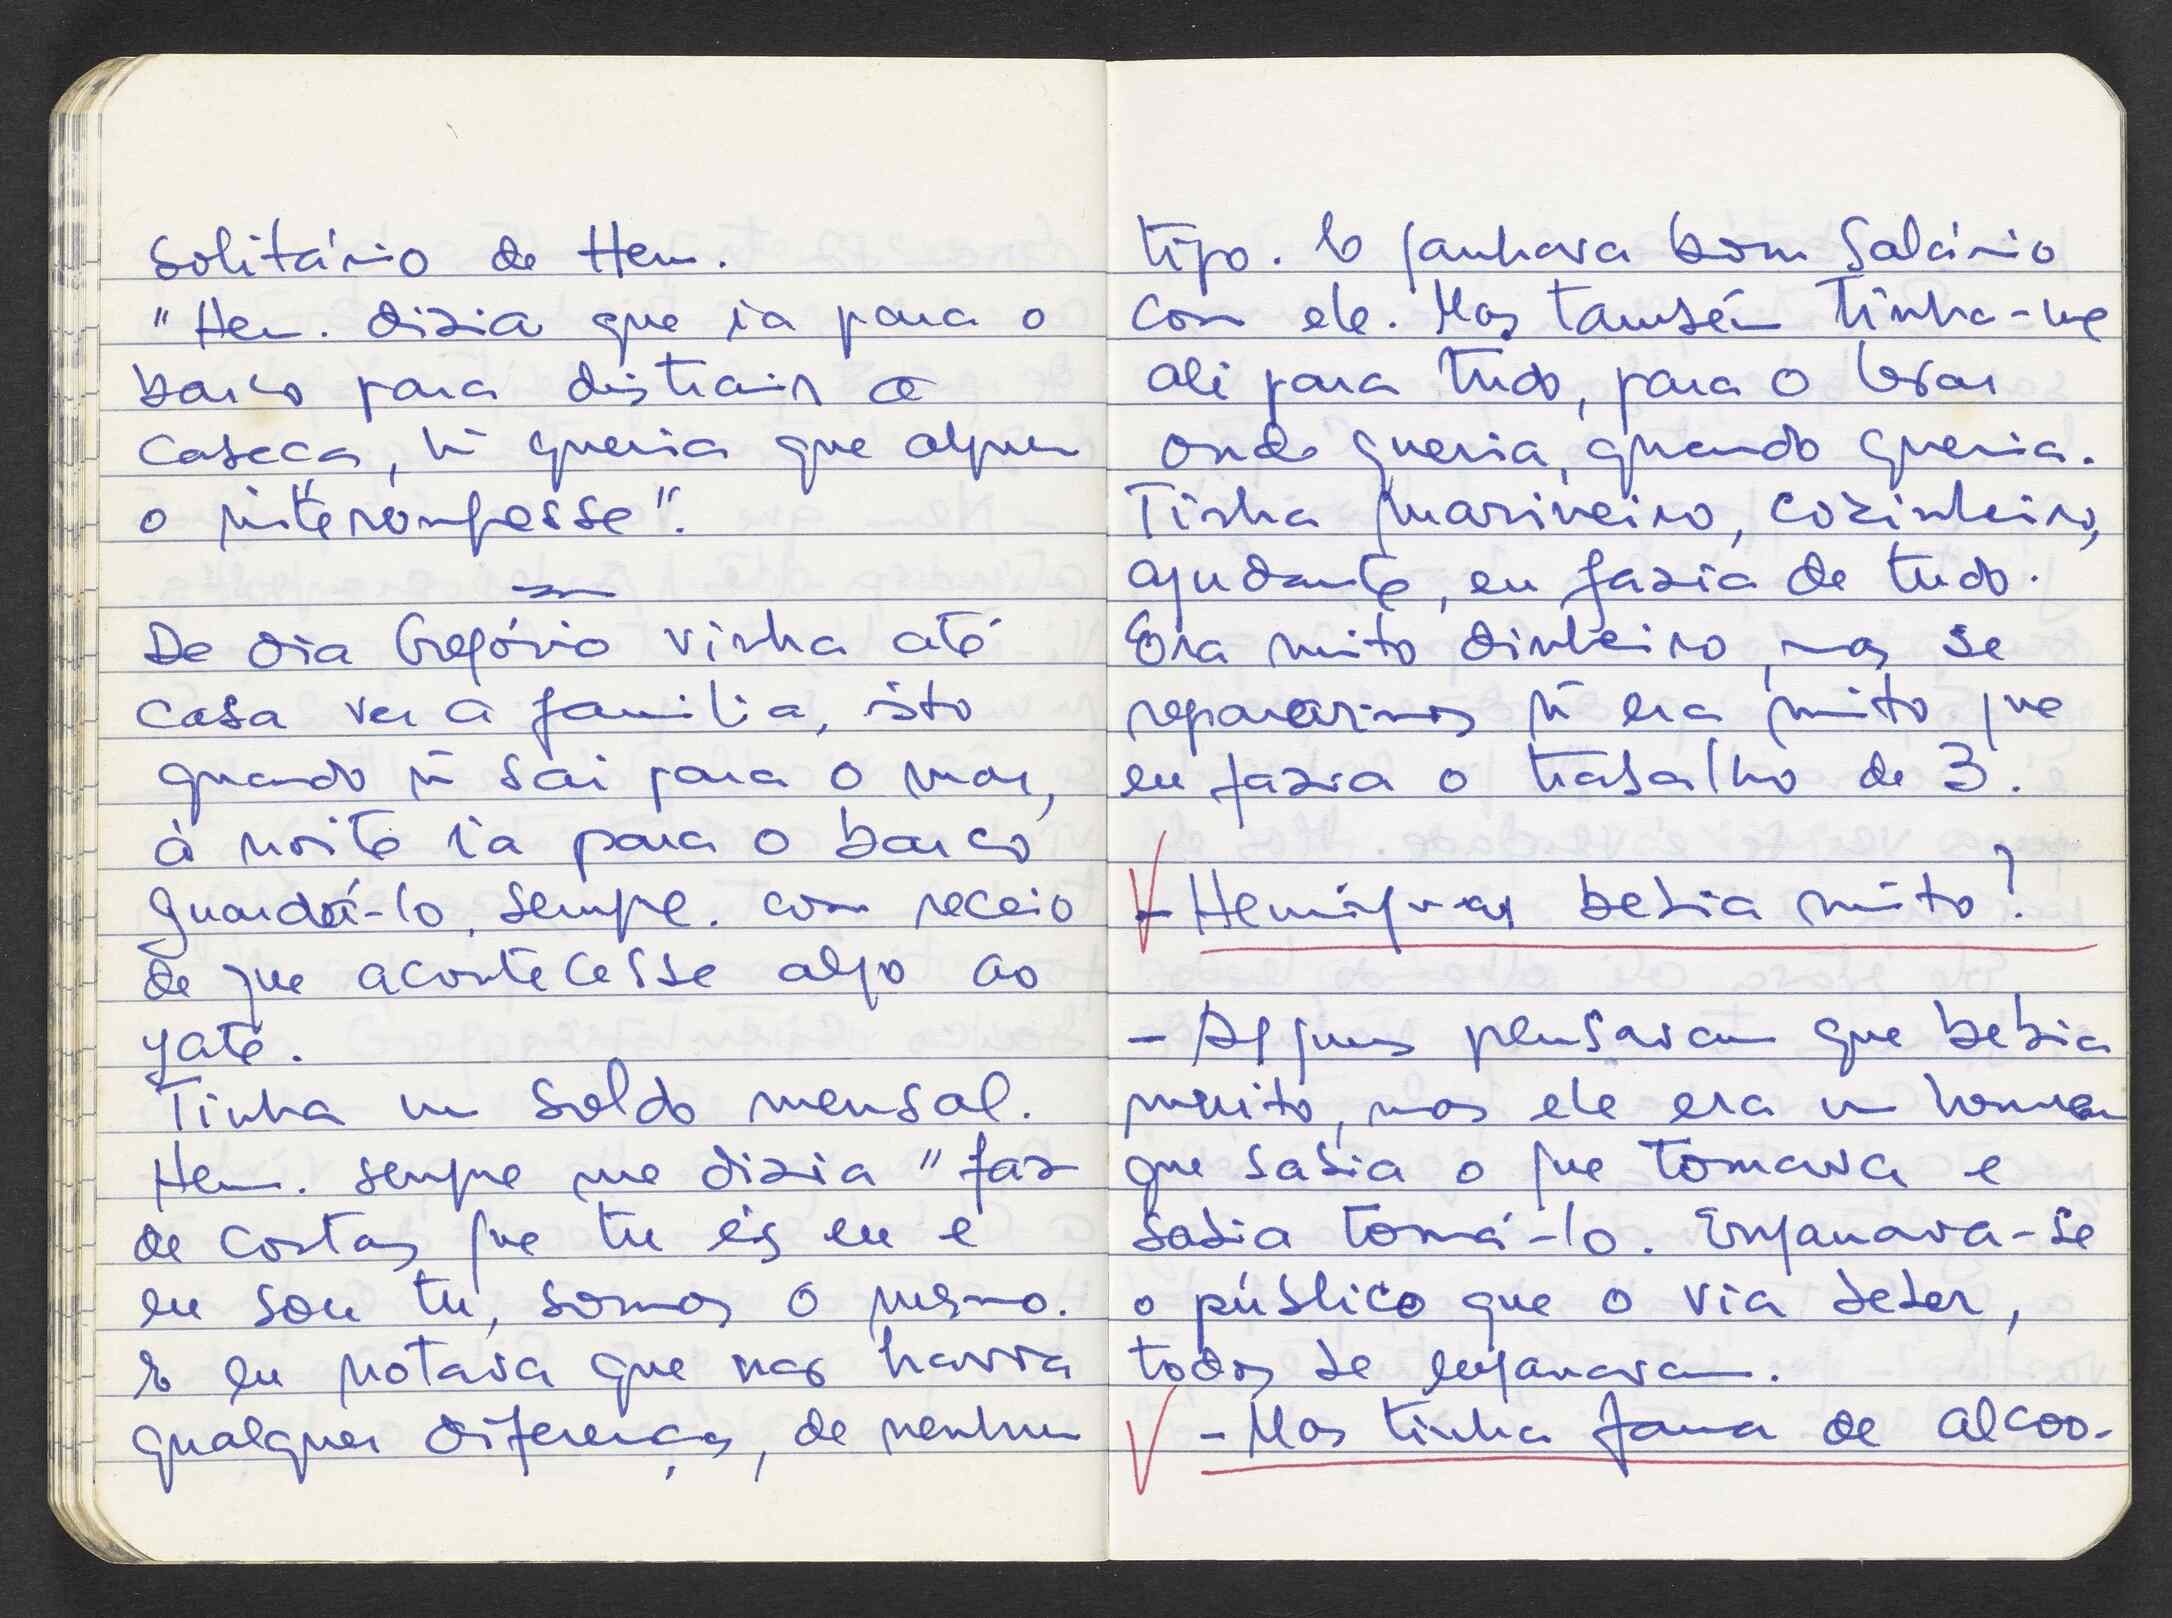 solitário de Hem.
"Hem. dizia que ia para o
barco para distrair a
cabeça, ñ queria que alguem
o interrompesse".
De dia Gregório vinha até
casa ver a familia, isto
quando ñ sai para o mar,
à noite ia para o barco
guardá-lo, sempre. com receio
de que acontecesse algo ao
yate.
Tinha um soldo mensal.
Hem. sempre me dizia "faz
de contas que tu és eu e
eu sou tu, somos o mesmo.
E eu notava que nao havia
qualquer diferença, de nenhum
tipo. E ganhava bom salário
com ele. Mas também tinha-me
ali para tudo, para o levar
onde queria, quando queria.
Tinha marineiro, cozinheiro,
ajudante, eu fazia de tudo.
Era muito dinheiro, mas se
repararmos ñ era muito que
eu fazia o trabalho de 3.
- Hemigway bebia muito?
- Alguns pensavam que bebia
muito, mas ele era um homem
que sabia o que tomava e
sabia tomá-lo. Enganava-se
o público que o via beber,
todos se enganavam.
- Mas tinha fama de alcoo-